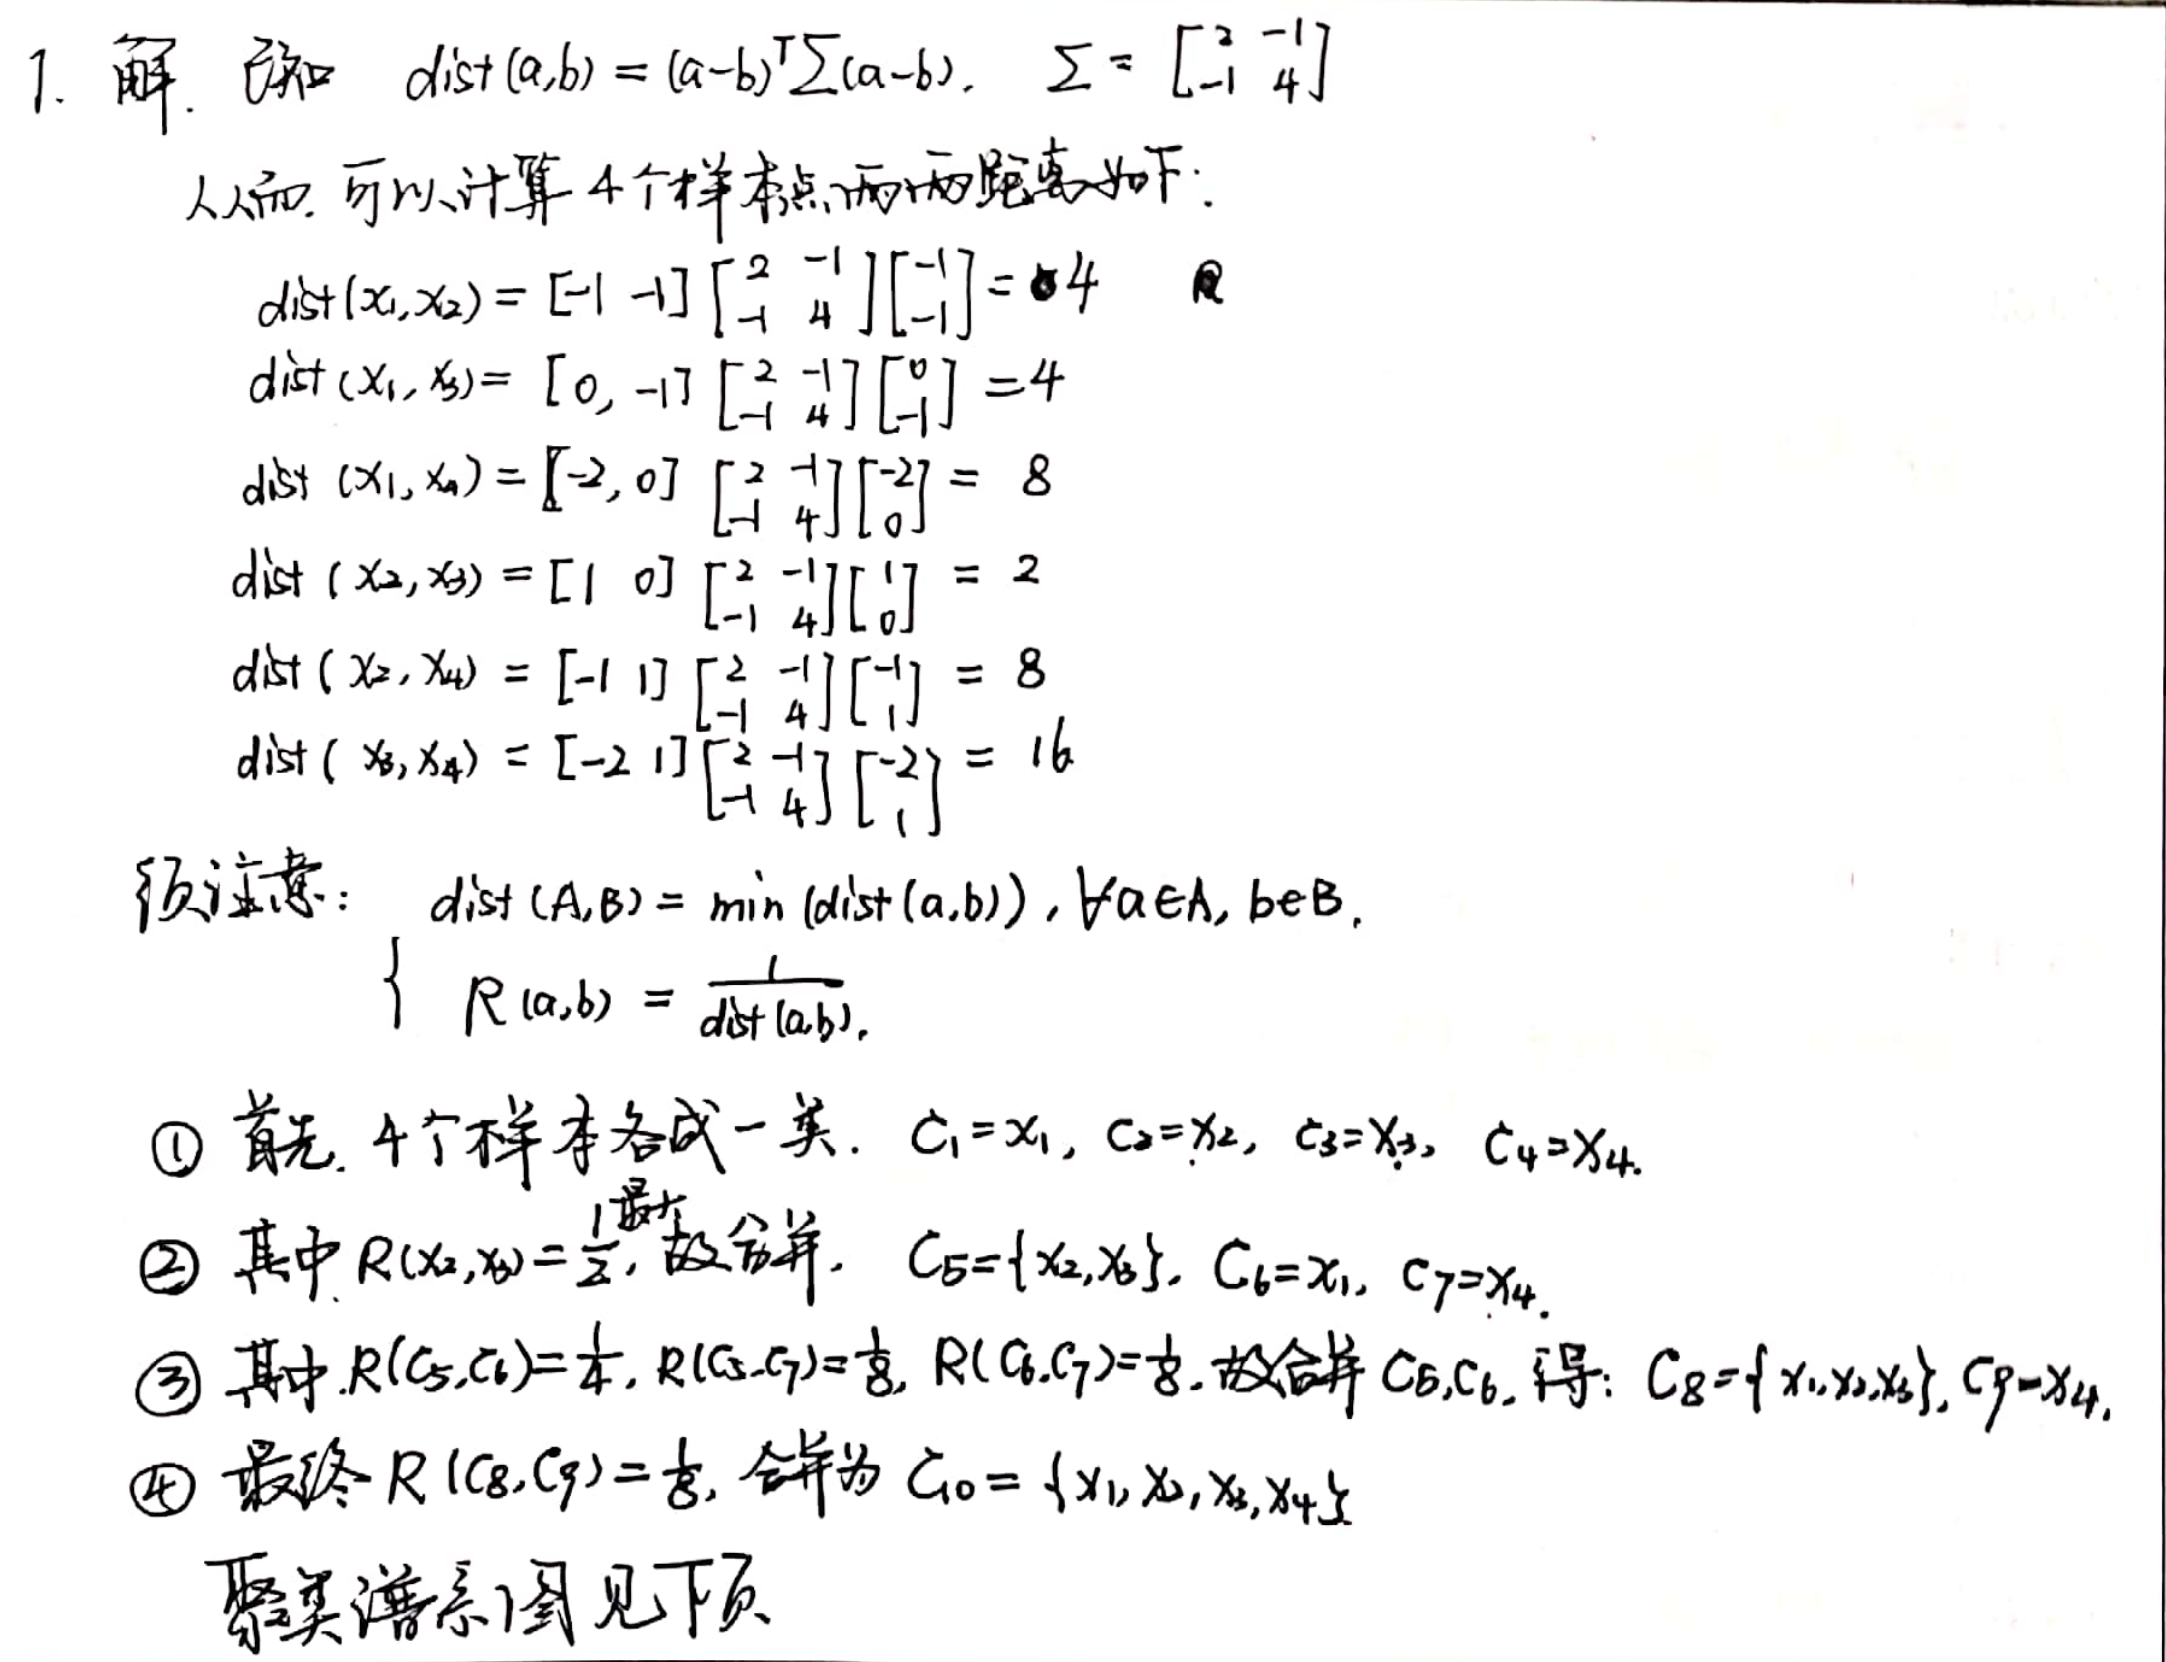 1. 解. 已知 dist(a,b) = (a-b)ᵀΣ(a-b). Σ = [2 -1; -1 4]
从而. 可以计算 4个样本点两两距离如下:
dist(x₁,x₂) = [-1 -1] [2 -1; -1 4] [-1; -1] = 4 R
dist(x₁,x₃) = [0, -1] [2 -1; -1 4] [0; -1] = 4
dist(x₁,x₄) = [-2, 0] [2 -1; -1 4] [-2; 0] = 8
dist(x₂,x₃) = [1 0] [2 -1; -1 4] [1; 0] = 2
dist(x₂,x₄) = [-1 1] [2 -1; -1 4] [-1; 1] = 8
dist(x₃,x₄) = [-2 1] [2 -1; -1 4] [-2; 1] = 16
须注意: dist(A,B) = min(dist(a,b)), ∀a∈A, b∈B.
{ R(a,b) = 1/dist(a,b).
① 首先. 4个样本各成一类. C₁=x₁, C₂=x₂, C₃=x₃, C₄=x₄.
② 其中R(x₂,x₃)=1/2最大, 故合并. C₅={x₂,x₃}. C₆=x₁, C₇=x₄.
③ 其中.R(C₅,C₆)=1/4, R(C₅,C₇)=1/8, R(C₆,C₇)=1/8. 故合并C₅,C₆. 得: C₈={x₁,x₂,x₃}, C₉=x₄.
④ 最终R(C₈,C₉)=1/8, 合并为 C₁₀={x₁,x₂,x₃,x₄}
聚类谱系图见下页